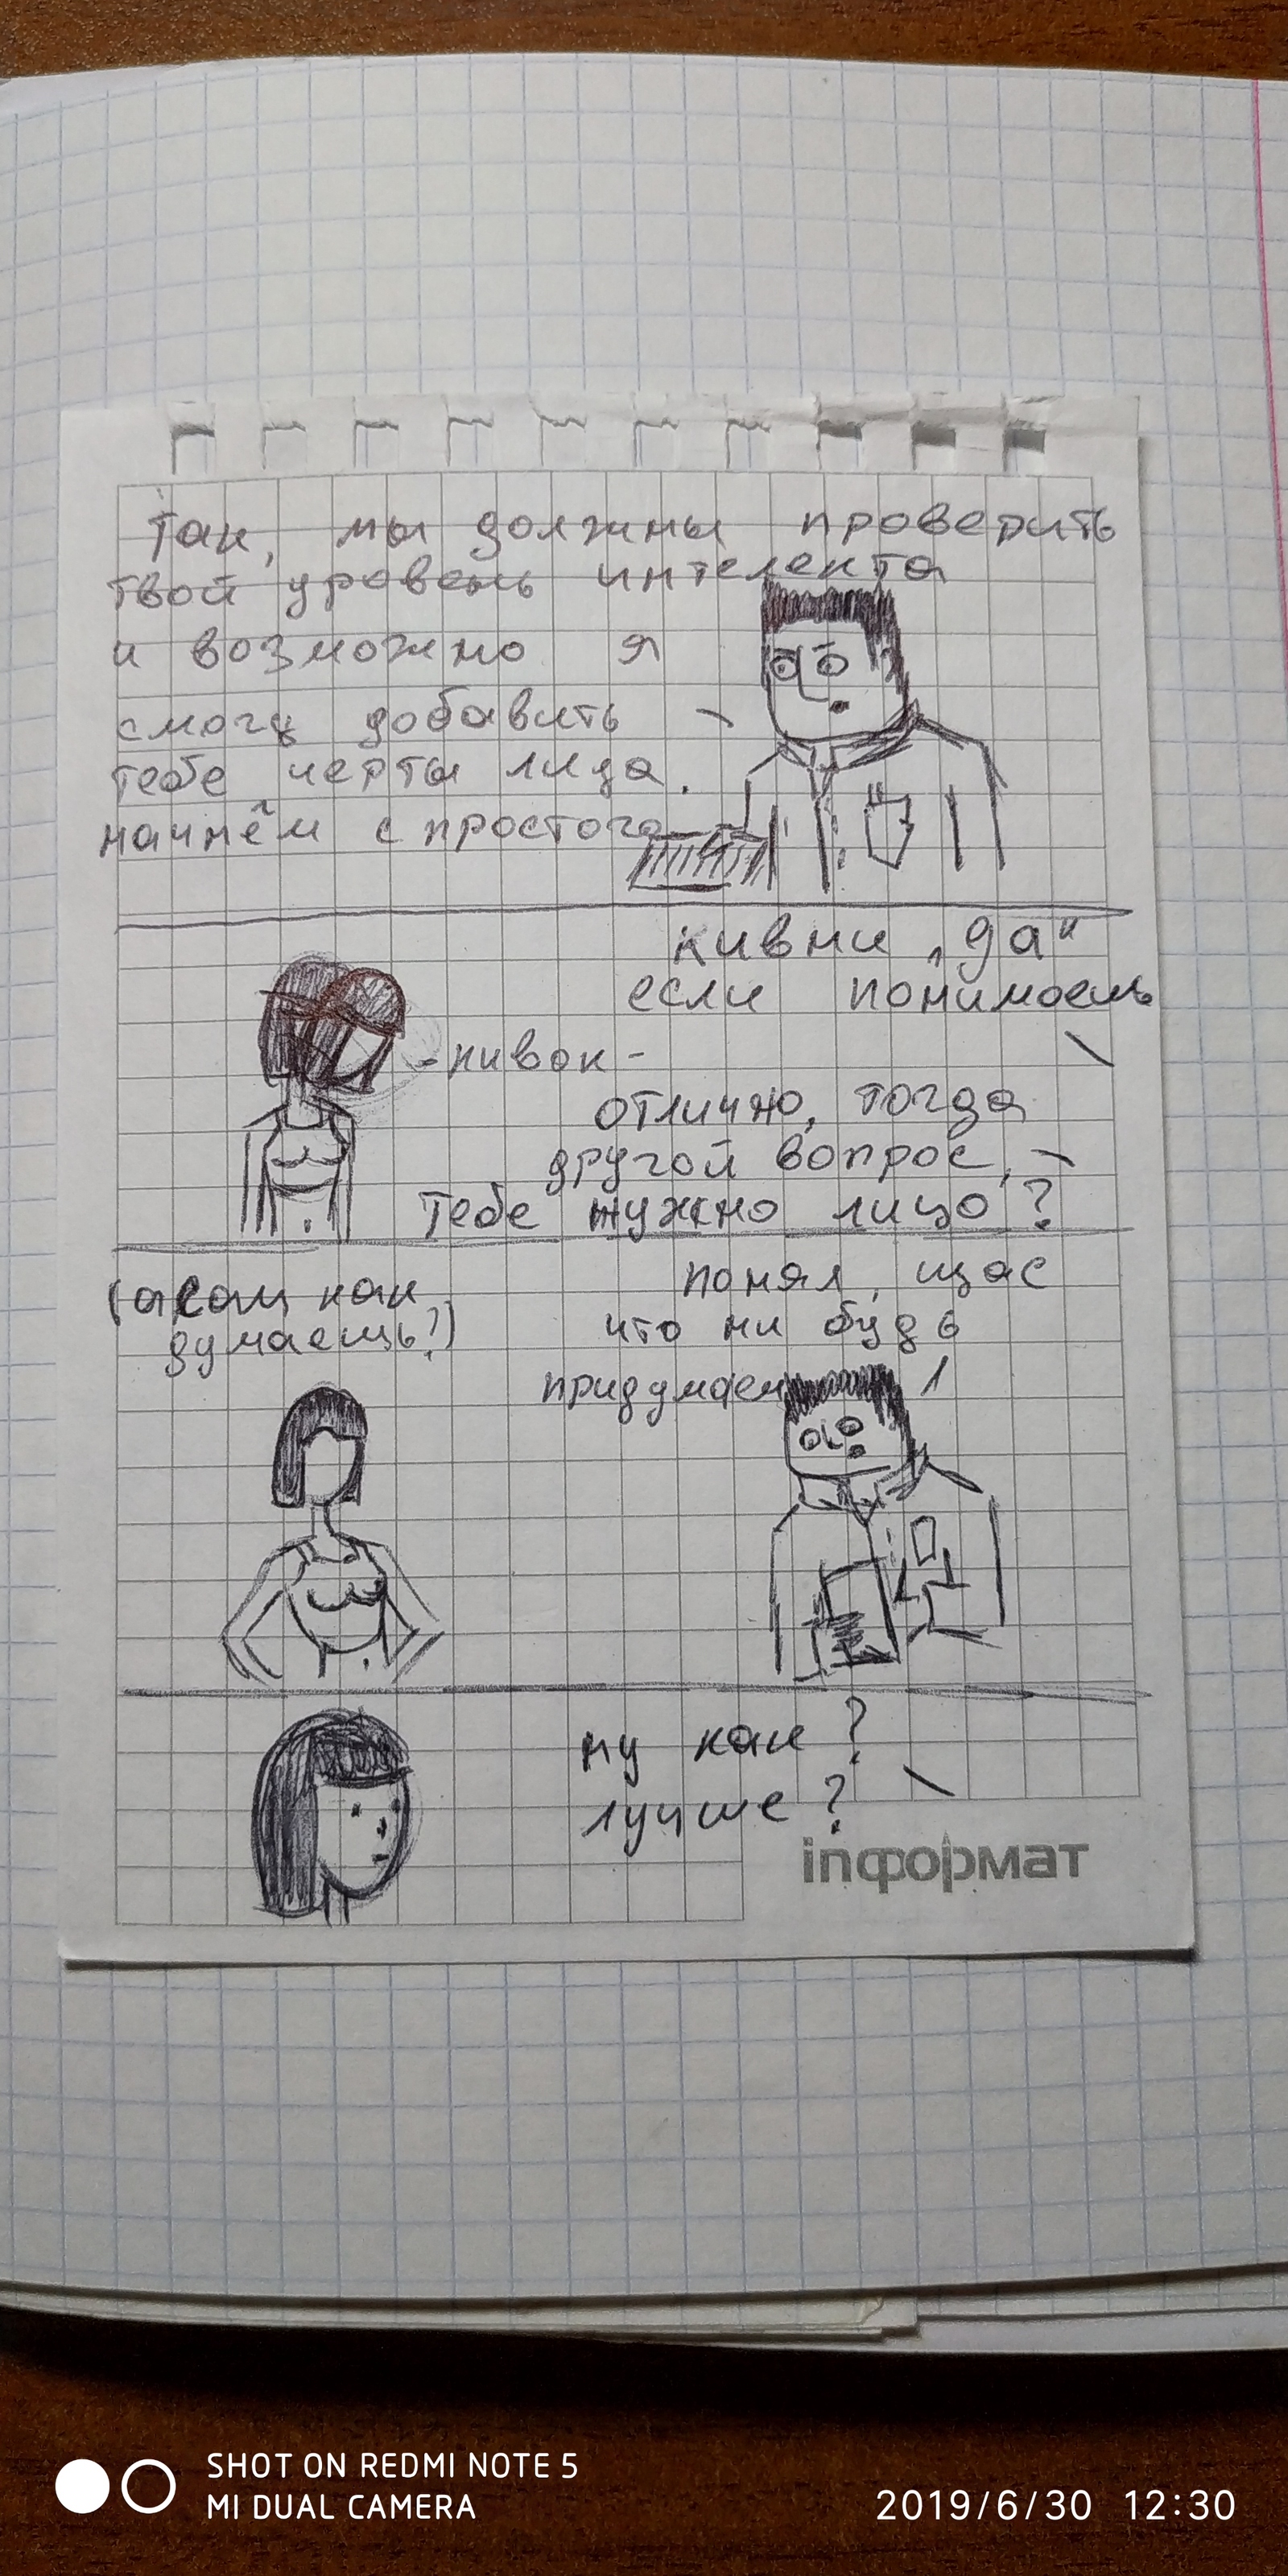 Так, мы должны проверить
твой уровень интелекта
и возможно я
смогу добавить
тебе черты лица.
начнём с простого
кивни „да“
если понимаешь
-кивок-
отлично, тогда
другой вопрос,
тебе нужно лицо?
(а сам как
думаешь?)
понял, щас
что ни будь
придумаем
ну как?
лучше?
inформат
SHOT ON REDMI NOTE 5
MI DUAL CAMERA
2019/6/30 12:30